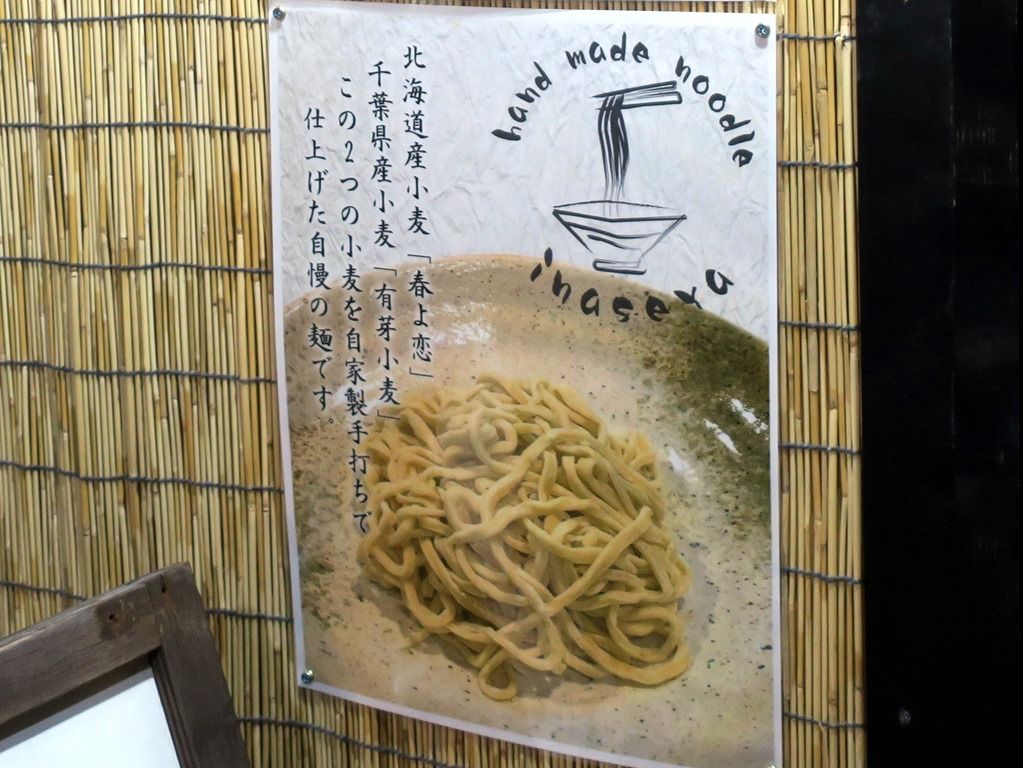 北海道産小麦「春よ恋」
千葉県産小麦「有芽小麦」
この2つの小麦を自家製手打ちで
仕上げた自慢の麺です。
hand made noodle
inaseya